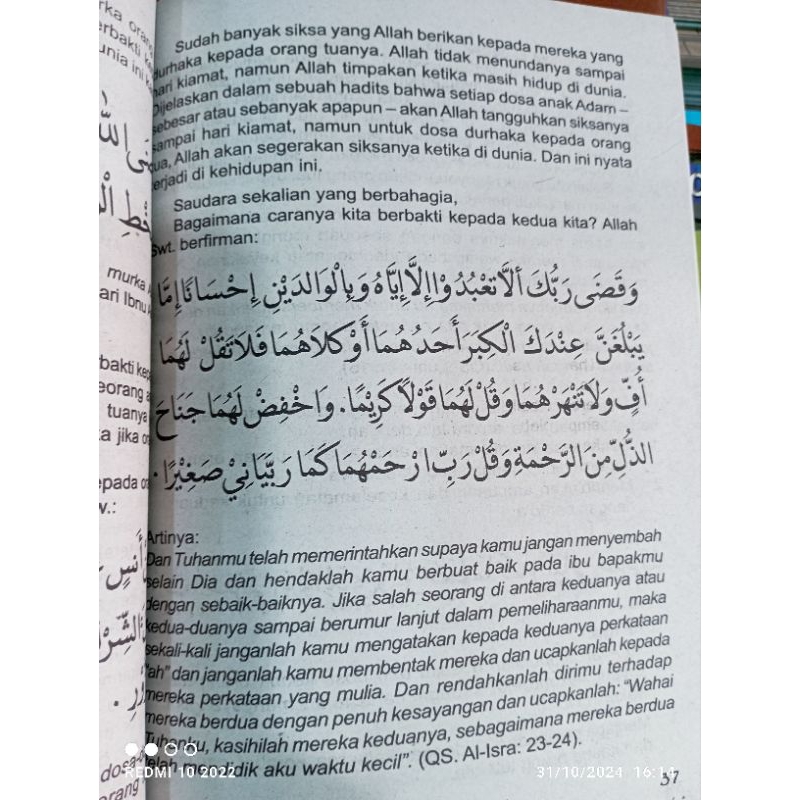 Sudah banyak siksa yang Allah berikan kepada mereka yang
durhaka kepada orang tuanya. Allah tidak menundanya sampai
hari kiamat, namun Allah timpakan ketika masih hidup di dunia.
Dijelaskan dalam sebuah hadits bahwa setiap dosa anak Adam –
sebesar atau sebanyak apapun – akan Allah tangguhkan siksanya
sampai hari kiamat, namun untuk dosa durhaka kepada orang
tua, Allah akan segerakan siksanya ketika di dunia. Dan ini nyata
terjadi di kehidupan ini.
Saudara sekalian yang berbahagia,
Bagaimana caranya kita berbakti kepada kedua kita? Allah
Swt. berfirman:
وَقَضَى رَبُّكَ أَلَّا تَعْبُدُوْا إِلَّا إِيَّاهُ وَبِالْوَالِدَيْنِ إِحْسَانًا إِمَّا
يَبْلُغَنَّ عِنْدَكَ الْكِبَرَ أَحَدُهُمَا أَوْ كِلَاهُمَا فَلَا تَقُلْ لَهُمَا
أُفٍّ وَلَا تَنْهَرْهُمَا وَقُلْ لَهُمَا قَوْلًا كَرِيْمًا. وَاخْفِضْ لَهُمَا جَنَاحَ
الذُّلِّ مِنَ الرَّحْمَةِ وَقُلْ رَبِّ ارْحَمْهُمَا كَمَا رَبَّيَانِيْ صَغِيْرًا.
Artinya:
Dan Tuhanmu telah memerintahkan supaya kamu jangan menyembah
selain Dia dan hendaklah kamu berbuat baik pada ibu bapakmu
dengan sebaik-baiknya. Jika salah seorang di antara keduanya atau
kedua-duanya sampai berumur lanjut dalam pemeliharaanmu, maka
sekali-kali janganlah kamu mengatakan kepada keduanya perkataan
"ah" dan janganlah kamu membentak mereka dan ucapkanlah kepada
mereka perkataan yang mulia. Dan rendahkanlah dirimu terhadap
mereka berdua dengan penuh kesayangan dan ucapkanlah: "Wahai
Tuhanku, kasihilah mereka keduanya, sebagaimana mereka berdua
telah mendidik aku waktu kecil". (QS. Al-Isra: 23-24).
37
REDMI 10 2022
31/10/2024 16:14